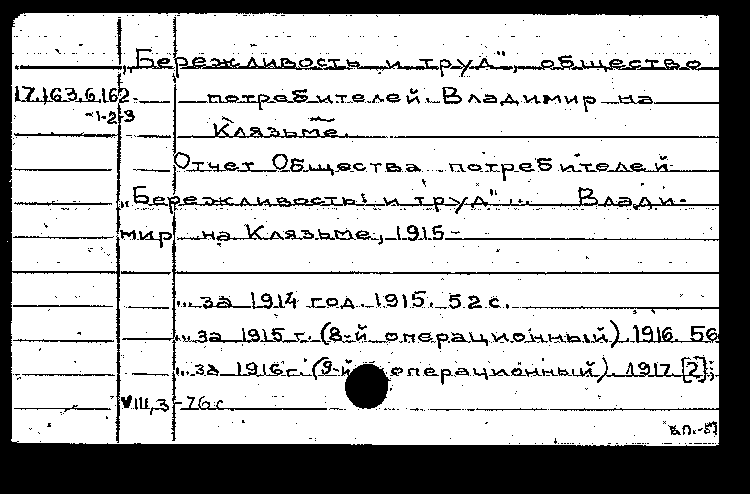 „Бережливость и труд", общество
17.163.6.162. потребителей. Владимир на
-1-2-3 Клязьме.
Отчет Общества потребителей
„Бережливость и труд" ... Влади-
мир на Клязьме, 1915-
... за 1914 год. 1915. 52 с.
... за 1915 г. (8-й операционный). 1916. 56
... за 1916 г. (9-й операционный). 1917. [2];
VIII, 3-76 с.